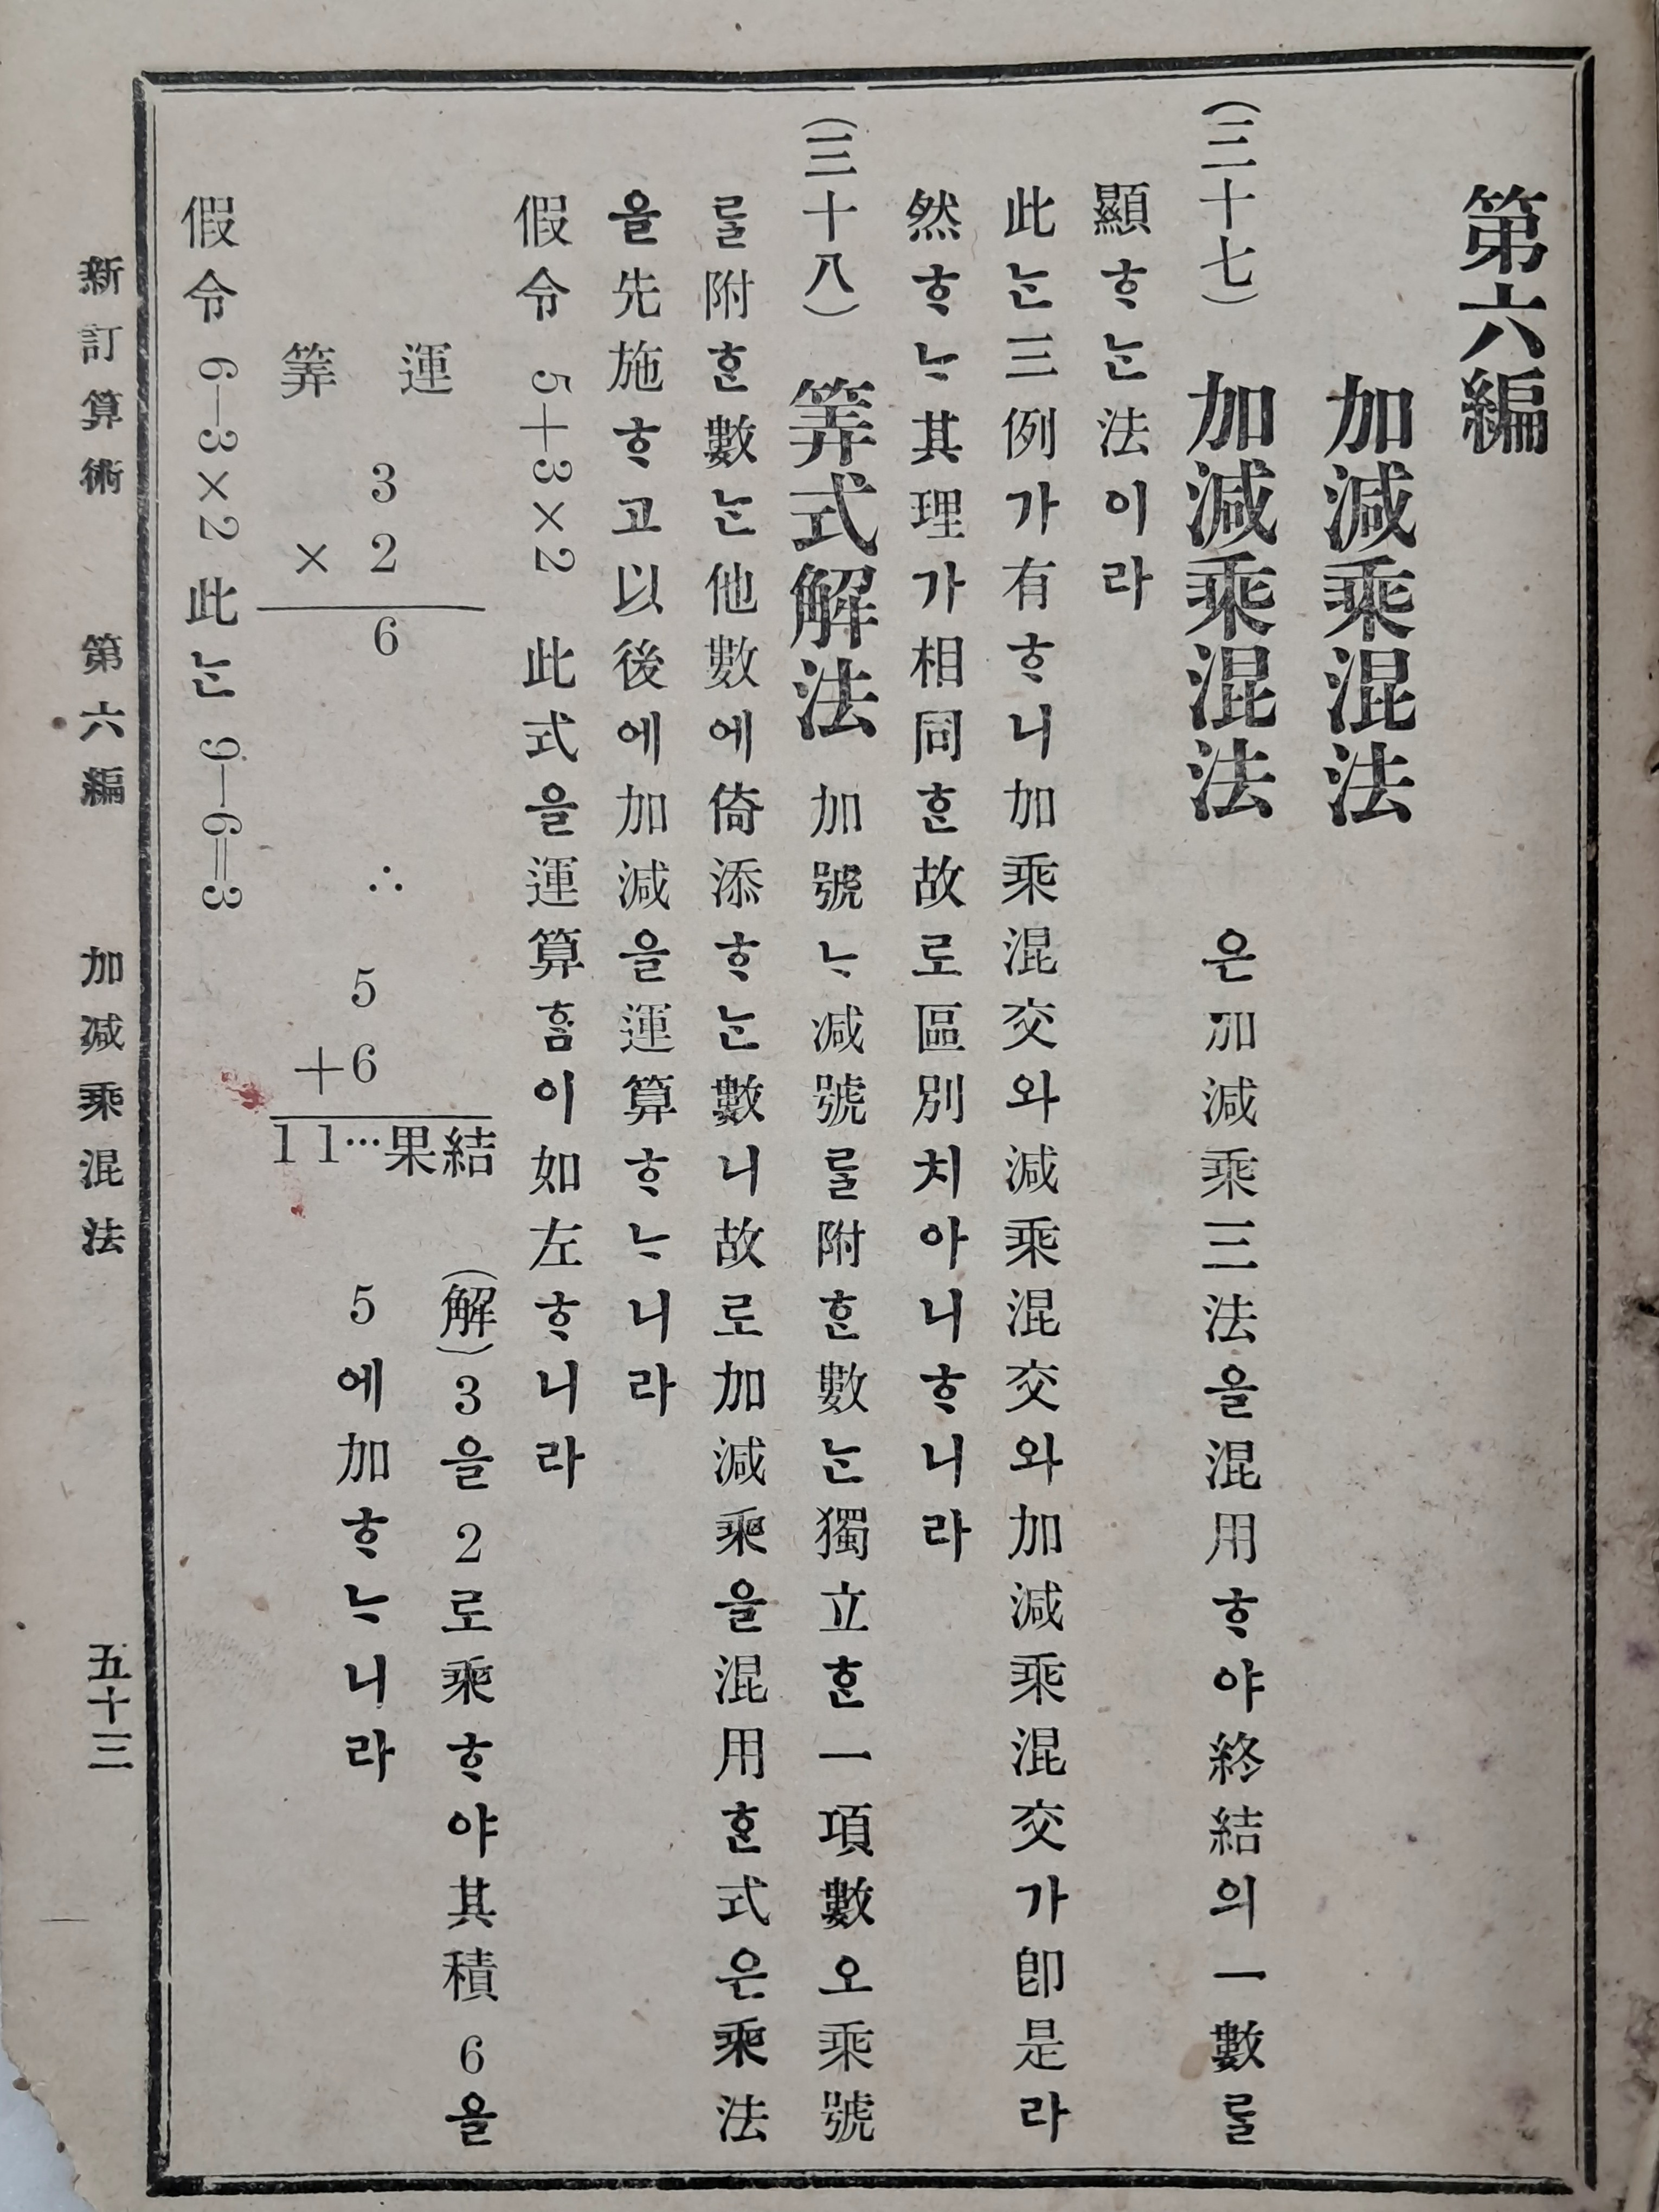 第六編
加減乘混法
(三十七) 加減乘混法 은加減乘三法을混用ᄒᆞ야終結의一數ᄅᆞᆯ
顯ᄒᆞᄂᆞᆫ法이라
此ᄂᆞᆫ三例가有ᄒᆞ니加乘混交와減乘混交와加減乘混交가卽是라
然ᄒᆞᄂᆞ其理가相同ᄒᆞᆫ故로區別치아니ᄒᆞ니라
(三十八) 筭式解法 加號ᄂᆞ減號ᄅᆞᆯ附ᄒᆞᆫ數ᄂᆞᆫ獨立ᄒᆞᆫ一項數오乘號
ᄅᆞᆯ附ᄒᆞᆫ數ᄂᆞᆫ他數에倚添ᄒᆞᄂᆞᆫ數니故로加減乘을混用ᄒᆞᆫ式은乘法
을先施ᄒᆞ고以後에加減을運算ᄒᆞᄂᆞ니라
假令 5+3×2 此式을運算ᄒᆞᆷ이如左ᄒᆞ니라
運筭
3
× 2
6
∴
5
+6
11…果結
(解)3을2로乘ᄒᆞ야其積6을
5에加ᄒᆞᄂᆞ니라
假令 6—3×2 此ᄂᆞᆫ 9—6=3
新訂算術 第六編 加減乘混法 五十三